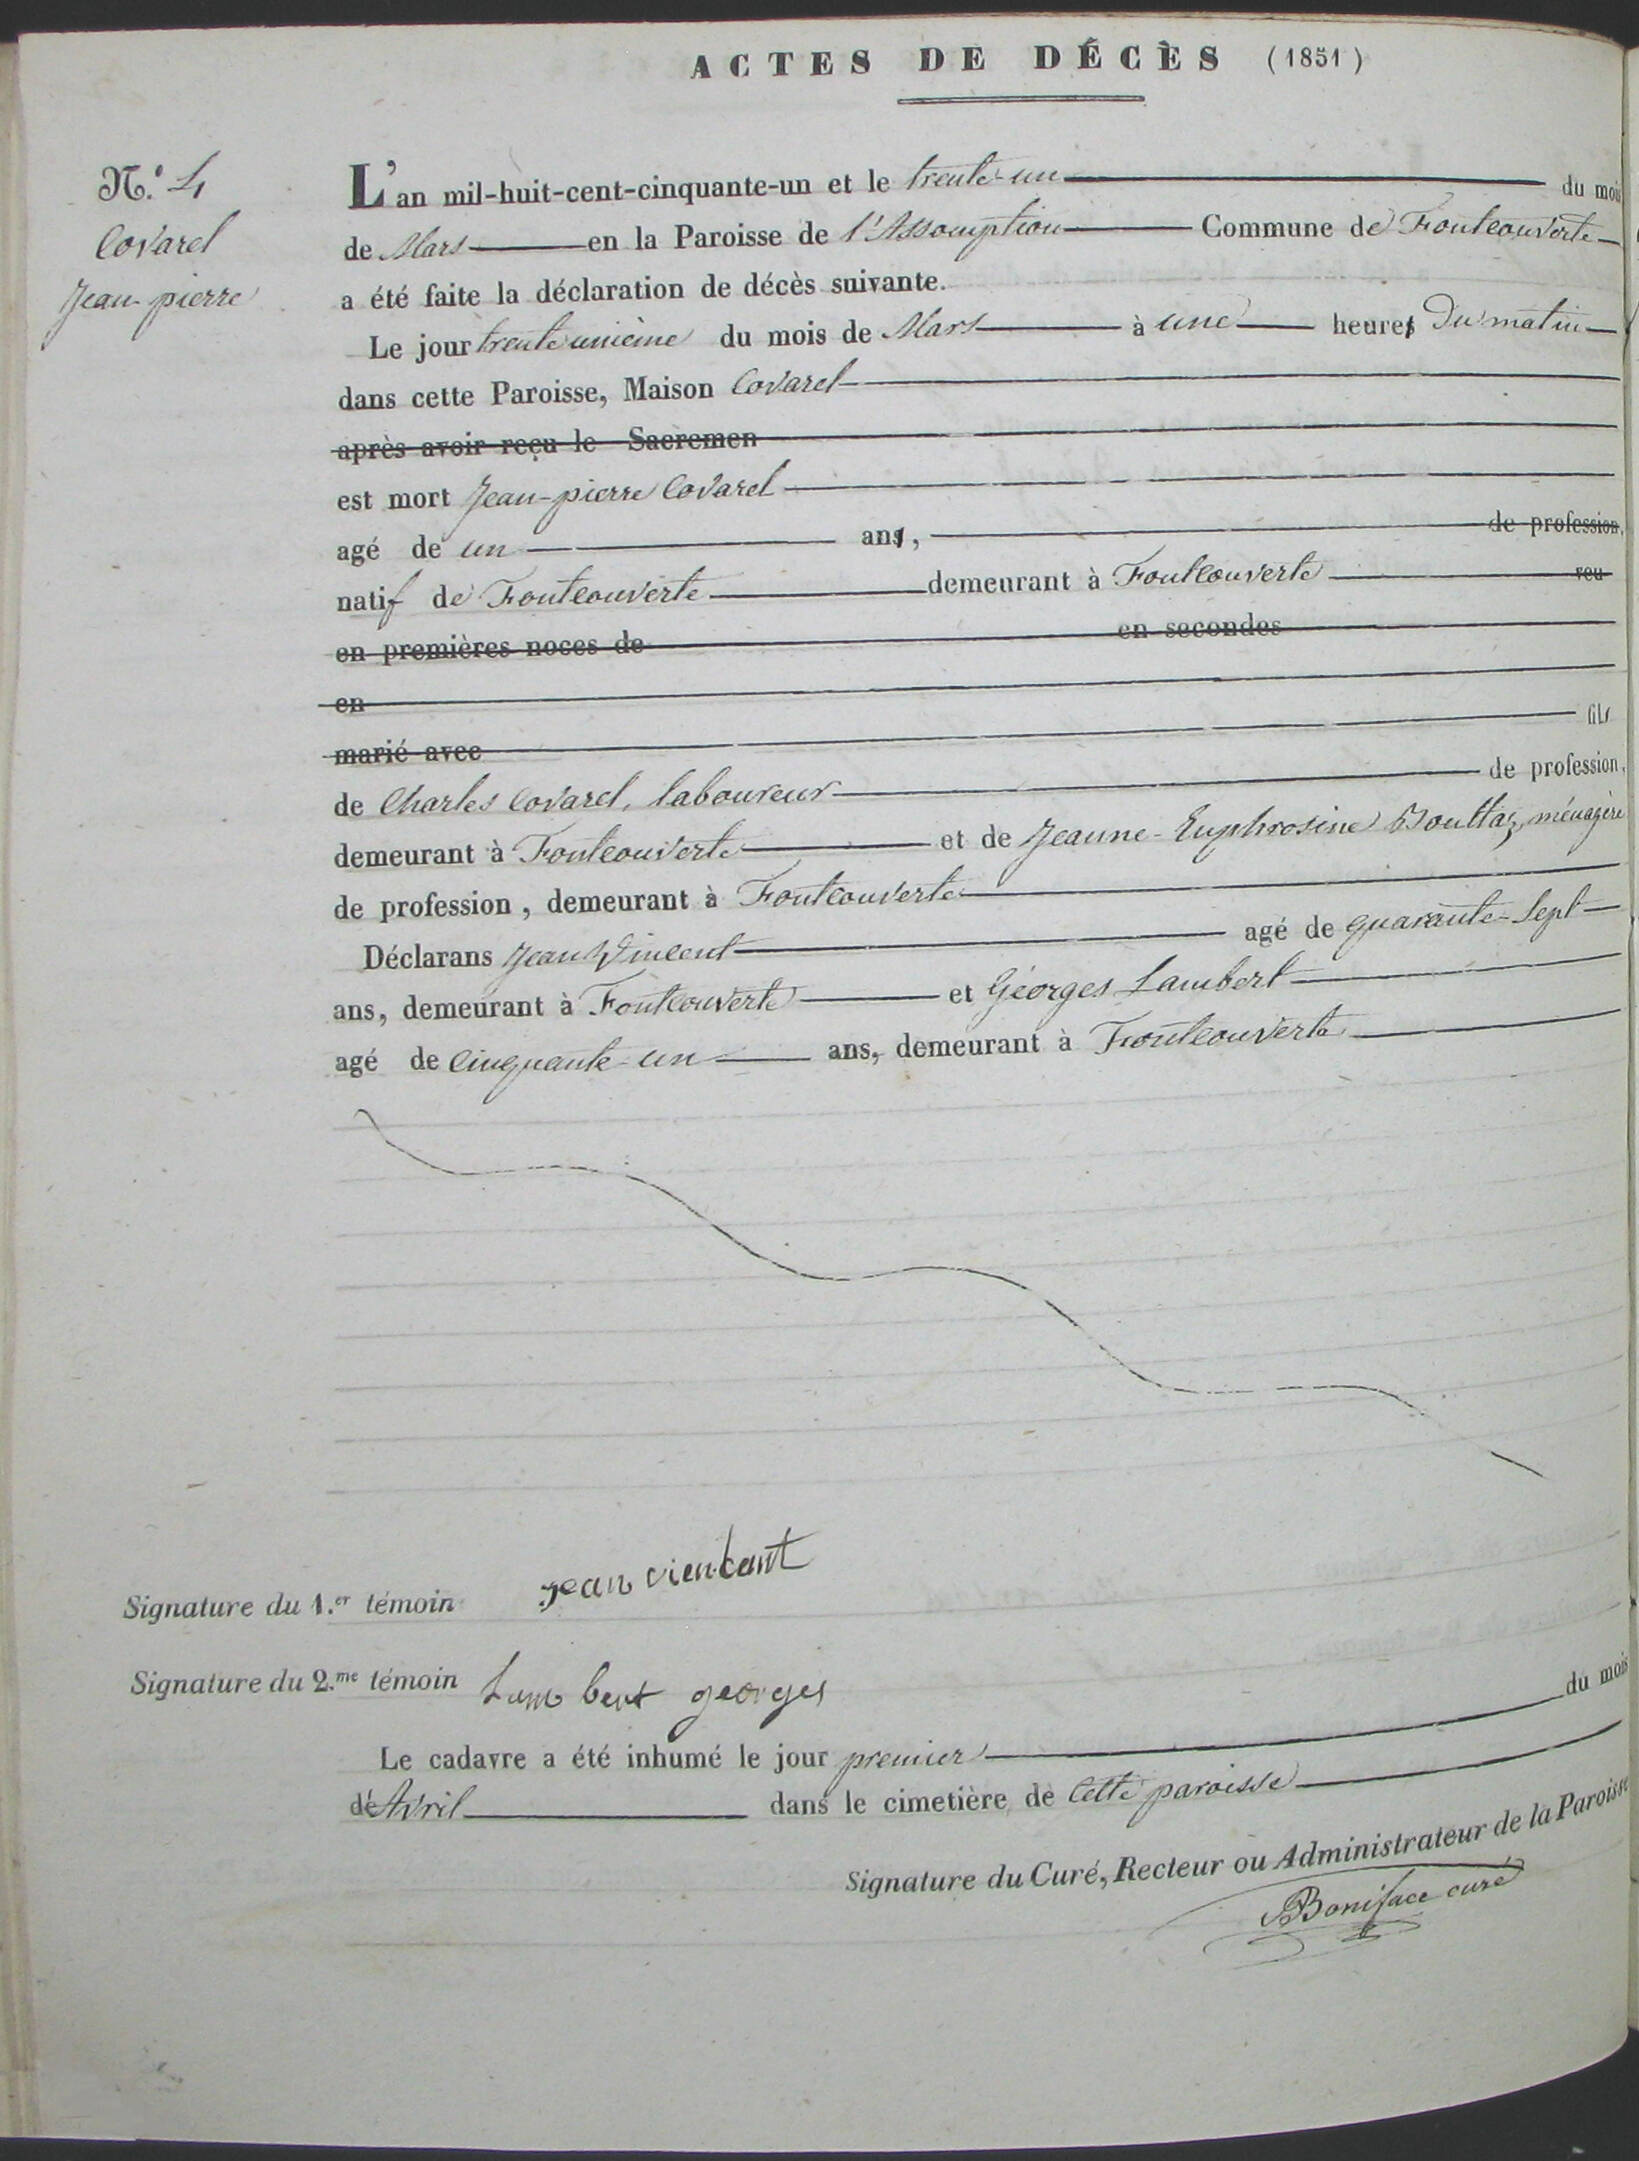 ACTES DE DÉCÈS (1851)
N.° 4
Covarel
Jean-pierre
L'an mil-huit-cent-cinquante-un et le trente-un du mois
de Mars en la Paroisse de l'Assomption Commune de Fontcouverte
a été faite la déclaration de décès suivante.
Le jour trente unième du mois de Mars à une heures du matin
dans cette Paroisse, Maison Covarel
après avoir reçu le Sacremen
est mort Jean-pierre Covarel
agé de un ans, de profession,
natif de Fontcouverte demeurant à Fontcouverte veu
en premières noces de en secondes
en
marié avec fils
de Charles Covarel, laboureur de profession,
demeurant à Fontcouverte et de Jeanne-Euphrosine Bouttaz, ménagère
de profession, demeurant à Fontcouverte
Déclarans Jean Vincent agé de quarante-sept
ans, demeurant à Fontcouverte et Georges Lambert
agé de cinquante-un ans, demeurant à Fontcouverte
Signature du 1.er témoin jean vientcent
Signature du 2.me témoin Lambert georges
Le cadavre a été inhumé le jour premier du mois
d'Avril dans le cimetière de cette paroisse
Signature du Curé, Recteur ou Administrateur de la Paroisse
Boniface curé